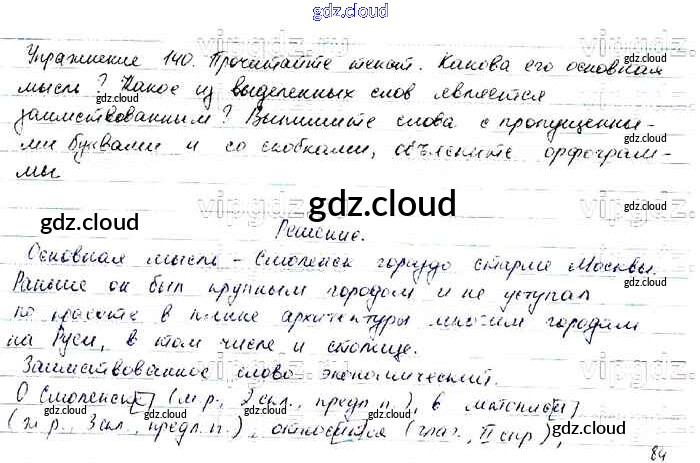 gdz.cloud
Упражнение 140. Прочитайте текст. Какова его основная
мысль? Какое из выделенных слов является
заимствованным? Выпишите слова с пропущенны-
ми буквами и со скобками, объясните орфограм-
мы
Решение.
Основная мысль - Смоленск гораздо старше Москвы.
Раньше он был крупным городом и не уступал
по красоте в плане архитектуры многим городам
на Руси, в том числе и столице.
Заимствованное слово экономический.
О Смоленск[е] (м.р., 2 скл., предл.п.), в летопис[и]
(ж.р., 3 скл., предл.п.), относ[и]тся (глаг., II спр),
84
gdz.cloud
gdz.cloud
gdz.cloud
gdz.cloud
gdz.cloud
gdz.cloud
gdz.cloud
gdz.cloud